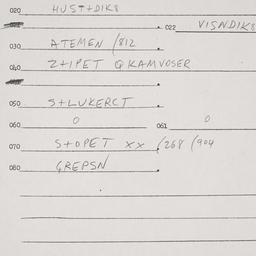 020 HUST+DIK8
022 VISNDIK8
030 ATEMEN /812
040 Z+IPET QKAMVOSER
050 S+LUKERCT
060 0 061 0
070 S+OPET XX /268 /904
080 GREPSN